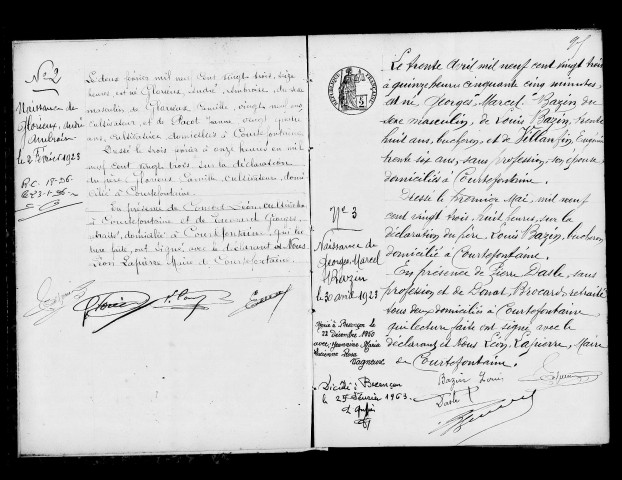 Nº 2
Naissance de
Glorieux, André
Ambroise
le 2 Février 1923
Le deux février mil neuf cent vingt trois, dix
heures est né Glorieux, André, Ambroise, du sexe
masculin de Glorieux Camille vingt neuf ans
cultivateur, et de
ans, cultivatrice domiciliés à Courtefontaine.
Dressé le trois février à onze heures en mil
neuf cent vingt trois sur la déclaration
du père, Glorieux Camille, cultivateur, domi
cilié à Courtefontaine.
En présence de Léon cultivateur
à Courtefontaine et de Georges,
domicilié à Courtefontaine, qui lec
ture faite, ont signé avec le déclarant et Nous
Léon Lapierre Maire de Courtefontaine.
Nº 3
Naissance de
Georges, Marcel
Bazin
le 30 avril 1923
Marié à Besançon le
22 décembre 1950
avec Jeannine Marie
Lucienne Rose
Vagneux
Décédé à Besançon
le 25 Février 1963
Le trente Avril mil neuf cent vingt trois
à quinze heures cinquante cinq minutes,
est né, Georges, Marcel, Bazin du
sexe masculin, de Louis Bazin, trente
huit ans, bucheron, et de Eugénie
trente six ans, sans profession, son épouse
domiciliés à Courtefontaine.
Dressé le premier Mai, mil neuf
cent vingt trois, huit heures, sur la
déclaration du père, Louis Bazin, bucheron
domicilié à Courtefontaine.
En présence de Pierre Dasle, sans
profession et de Donat Brocard, retraité
tous deux domiciliés à Courtefontaine
qui lecture faite ont signé avec le
déclarant et Nous Léon Lapierre, Maire
de Courtefontaine.
Bazin Louis
Dasle P